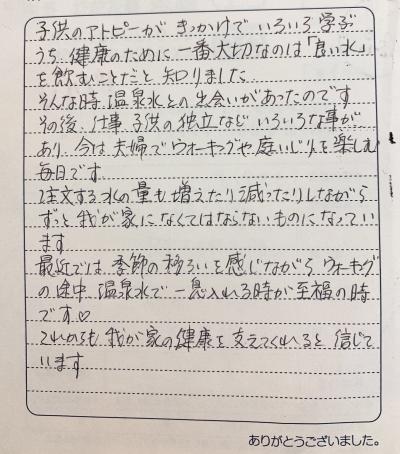 子供のアトピーがきっかけでいろいろ学ぶ
うち 健康のために一番大切なのは「良い水」
を飲むことだと知りました
そんな時 温泉水との出会いがあったのです
その後、仕事 子供の独立など いろいろな事が
あり 今は 夫婦で ウォーキングや 庭いじりを 楽しむ
毎日です
注文する水の量も 増えたり 減ったりしながら
ずっと 我が家になくてはならないものに なってい
ます
最近では 季節の移ろいを感じながら ウォーキング
の途中 温泉水で 一息入れる時が 至福の時
です♡
これからも 我が家の健康を 支えてくれると 信じて
います
ありがとうございました。